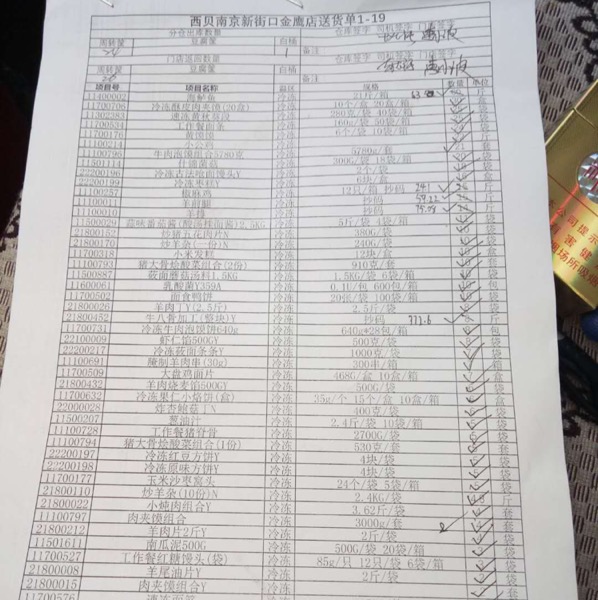 西贝南京新街口金鹰店送货单1-19
分仓出库数量 仓库签字 司机签字 门店签字
周转筐 豆腐筐 白桶 备注
门店返回数量 仓库签字 司机签字 门店签字
周转筐 豆腐筐 白桶 备注
项目号 项目名称 温区 规格 数量 单位
11400002 海鲈鱼 冷冻 21斤/箱 斤
11700706 冷冻酥皮肉夹馍(20盒) 冷冻 10个/盒 20盒/箱 盒
11302383 速冻黄秋葵段 冷冻 280克/袋 40袋/箱 袋
11700534 工作餐面条 冷冻 160g/袋 50袋/箱 袋
11700176 黄馍馍 冷冻 6个/袋 10袋/箱 袋
11100214 小公鸡 冷冻
11100796 牛肉泡馍组合5780克 冷冻 5780g/套 套
11501114 牛肝菌菇 冷冻 300G/袋 18袋/箱 袋
22200196 冷冻古法呛面馒头Y 冷冻 2个/袋 袋
22200199 冷冻枣糕Y 冷冻 6块/盒 盒
11100257 椒麻鸡 冷冻 12只/箱 抄码 斤
11100011 羊前腿 冷冻 抄码 斤
11100010 羊排 冷冻 抄码 斤
11500029 冷冻 5斤/袋 4袋/箱 袋
21800152 炒猪乳花肉片N 冷冻 380G/袋 袋
21800170 炒羊杂(一份)N 冷冻 240G/袋 袋
11700318 小米发糕 冷冻 12块/盒 盒
11100793 猪大骨烩酸菜组合(2份) 冷冻 910克/套 套
11500887 莜面蘑菇汤料1.5KG 冷冻 1.5KG/袋 6袋/箱 袋
11600061 乳酸菌Y359A 冷冻 0.1U/包 600包/箱 包
11700502 面食鸭饼 冷冻 20张/袋 100袋/箱 袋
21800026 羊肉丁Y(2.5斤) 冷冻 2.5斤/袋 袋
21800452 牛八骨加工(整块)Y 冷冻 抄码 777.6 斤
11700731 冷冻牛肉泡馍饼640g 冷冻 640g*28包/箱 包
22100009 虾仁馅500GY 冷冻 500克/袋 袋
22200217 冷冻莜面条条Y 冷冻 1000克/袋 袋
11100691 腌制羊肉串(30g) 冷冻 300串/箱
11700509 大盘鸡面片 冷冻 468G/盒 10盒/箱 盒
21800432 羊肉烧麦馅500GY 冷冻 500G/袋 袋
11700632 冷冻果仁小烙饼(盒) 冷冻 35g/个 15个/盒 10盒/箱 盒
22000028 炸杏鲍菇丁N 冷冻 400克/袋 袋
11500207 葱油汁 冷冻 2.4斤/袋 10袋/箱 袋
11100728 工作餐猪脊骨 冷冻 2700G/袋 袋
11100794 猪大骨烩酸菜组合(1份) 冷冻 530克/套 套
22200197 冷冻红豆方饼Y 冷冻 4块/袋 袋
22200198 冷冻原味方饼Y 冷冻 4块/袋 袋
11700177 玉米沙枣窝头 冷冻 24个/袋 5袋/箱 袋
21800110 炒羊杂(10份)N 冷冻 2.4KG/袋 袋
21800022 小炖肉组合Y 冷冻 3.62斤/袋 袋
11100797 肉夹馍组合 冷冻 3000g/套 2 套
21800212 羊肉片2斤Y 冷冻 2斤/袋 袋
11501611 南瓜泥500G 冷冻 500G/袋 20袋/箱 袋
11700527 工作餐红糖馒头(袋) 冷冻 85g/只 12只/袋 6袋/箱 袋
21800008 羊尾油片Y 冷冻 2斤/袋 袋
21800015 肉夹馍组合Y 冷冻
11700576 冷冻